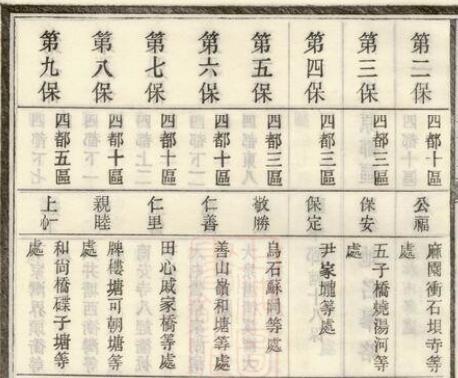 第二保
四都十區
公福
麻園衝石壩寺等
處
第三保
四都三區
保安
五子橋燒湯河等
處
第四保
四都三區
保定
尹家壚等處
第五保
四都三區
敬勝
烏石蘇洞等處
第六保
四都十區
仁善
善山嶺和塘等處
第七保
四都十區
仁里
田心戚家橋等處
第八保
四都十區
親睦
牌樓塘可朝塘等
處
第九保
四都五區
上仁
和尙橋碟子塘等
處